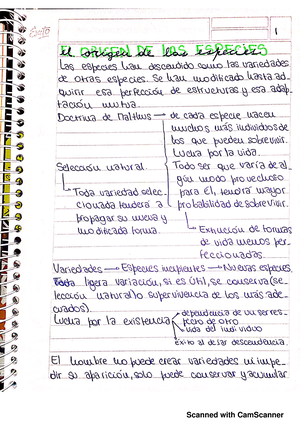 1
EL ORIGEN DE LAS ESPECIES
Las especies han descendido como las variedades
de otras especies. Se han modificado hasta ad-
quirir esa perfección de estructuras y esa adap-
tación mutua.
Doctrina de Malthus → de cada especie nacen
muchos más individuos de
los que pueden sobrevivir.
Lucha por la vida.
Selección natural. Todo ser que varía de al
gún modo provechoso
Toda variedad selec_ para él, tendrá mayor
cionada tenderá a probabilidad de sobrevivir.
propagar su nueva y
modificada forma. Extinción de formas
de vida menos per-
feccionadas.
Variedades → Especies incipientes → Nuevas especies.
Toda ligera variación, si es útil, se conserva (se-
lección natural o supervivencia de los más ade-
cuados).
Lucha por la existencia dependencia de un ser res-
pecto de otro
vida del individuo
éxito al dejar descendencia.
El hombre no puede crear variedades ni impe-
dir su aparición, solo puede conservar y acumular
Scanned with CamScanner